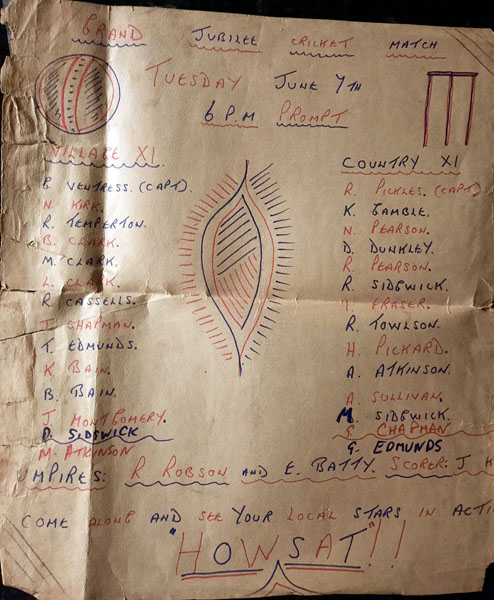 GRAND JUBILEE CRICKET MATCH
TUESDAY JUNE 7TH
6 P.M PROMPT
VILLAGE XI.
B. VENTRESS. (CAPT).
N. KIRK.
R. TEMPERTON.
B. CLARK.
M. CLARK.
L. CLARK.
R. CASSELLS.
J. CHAPMAN.
T. EDMUNDS.
K. BAIN.
B. BAIN.
J. MONTGOMERY.
D. SIDGWICK
M. ATKINSON
COUNTRY XI
R. PICKLES. (CAPT)
K. GAMBLE.
N. PEARSON.
D. DUNKLEY.
R. PEARSON.
R. SIDGWICK.
FRASER.
R. TOWLSON.
H. PICKARD.
A. ATKINSON.
A. SULLIVAN.
M. SIDGWICK.
CHAPMAN
G. EDMUNDS
UMPIRES: R ROBSON AND E. BATTY. SCORER: J
COME ALONG AND SEE YOUR LOCAL STARS IN ACTI
"HOWSAT"!!